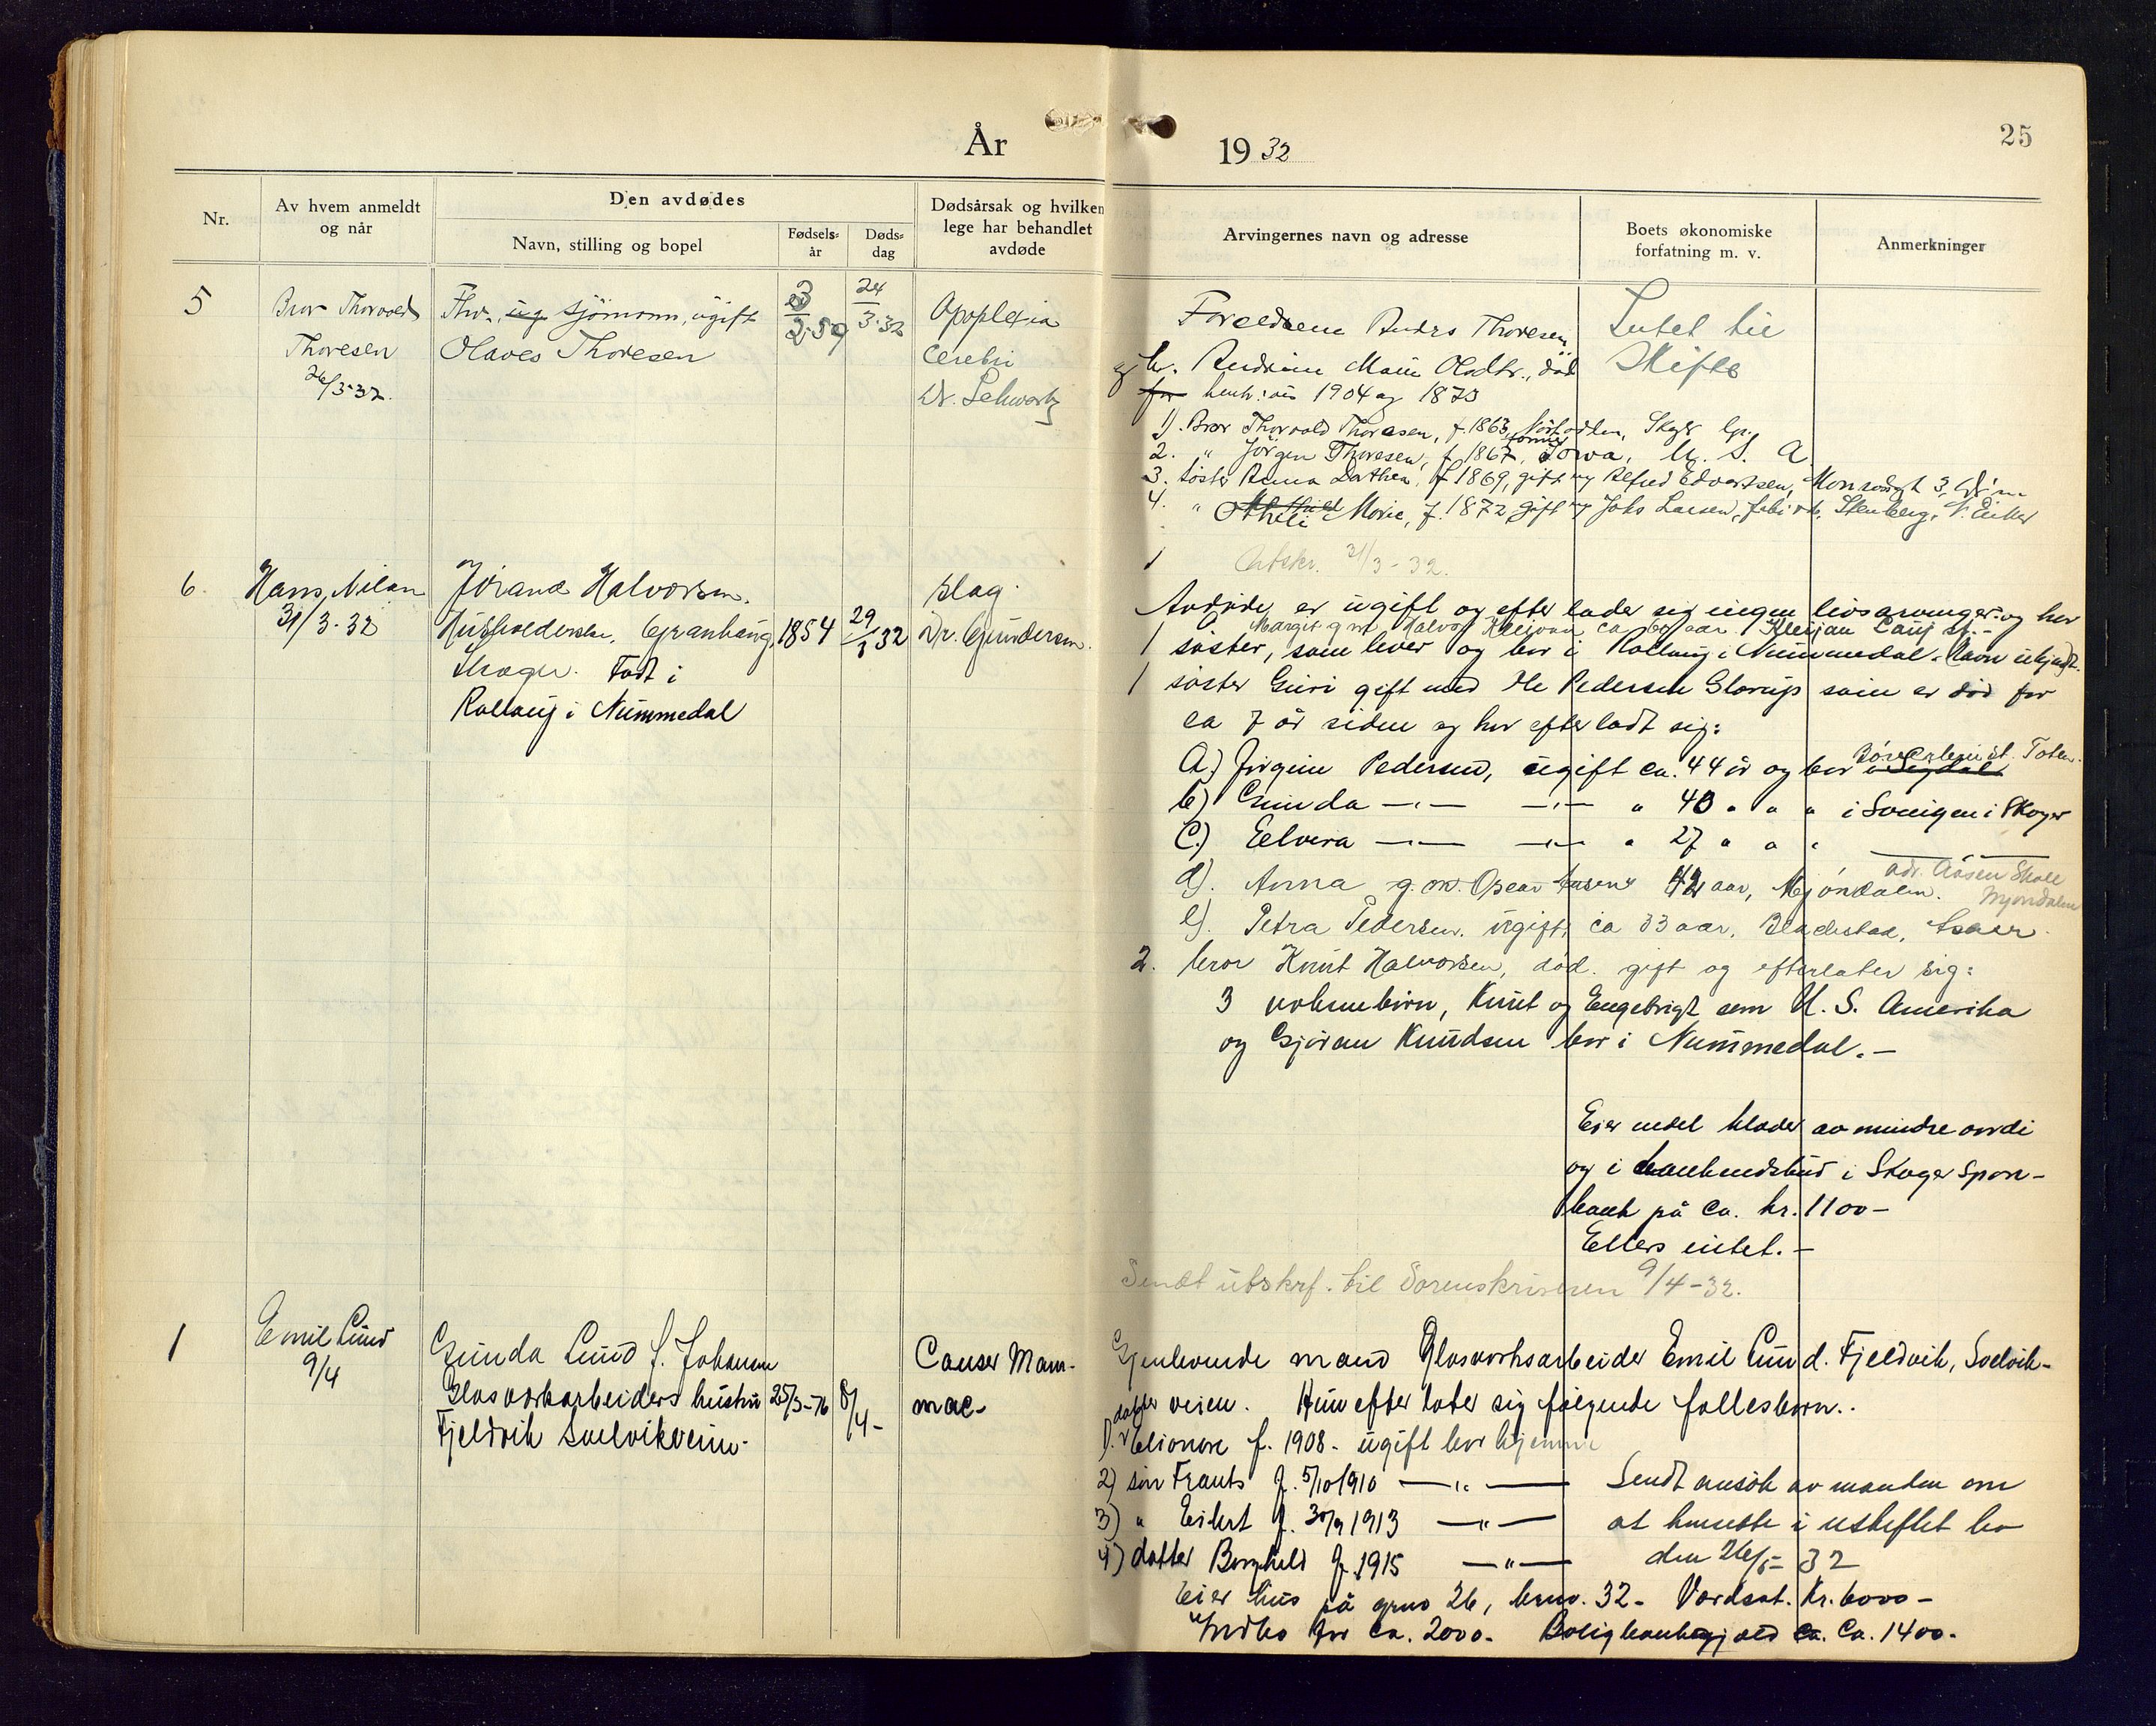 25
År 1932
Nr.
Av hvem anmeldt
og når
Den avdødes
Navn, stilling og bopel
Fødsels-
år
Døds-
dag
Dødsårsak og hvilken
lege har behandlet
avdøde
Arvingernes navn og adresse
Boets økonomiske
forfatning m. v.
Anmerkninger
5
Bror Thorvald
Thoresen
26/3-32.
Fhv. ug. sjömann, ugift
Olaves Thoresen
3/2-59
24/3-32
Apoplexia
cerebri
Dr. Schwartz
Foreldrene Anders Thoresen
og h. Andrine Marie Olsdtr., död
for henh: vis 1904 og 1873
1). Bror Thorvald Thoresen, f. 1863, Skoger
2. " Jörgen Thoresen, f. 1867, farmer Iowa, U. S. A
3. Söster Anna Dorthea, f 1869, gift m/ Alfred Edvartsen,
4. " Mathild Othili Marie, f. 1872, gift m/ Johs Larsen, Stenberg, N. Eiker
Intet til
Skifte
Utskr. 31/3-32.
6.
Hans Nilsen
31/3-32
Jörand Halvorsen.
Husholderske, Granhaug,
Skoger. Födt i
Rollaug i Nummedal
1854
29/3 32
Slag.
Dr. Gundersen.
Avdøde er ugift og efterlader sig ingen livsarvinger og har
Margit g m Halvor Kleivan, ca aar. Kleivan
1 söster, som lever og bor i Rollaug i Nummedal. Navn ukjendt.
1 söster Guri gift med Ole Pedersen Glorup som er död for
ca 7 år siden og har efterladt sig:
A.) Jörgine Pedersen, ugift ca. 44 år og bor i Sigdal. st. Toten.
b) Gunda —"— —"— " 40 " " " i Solvigen i Skoger
C.) Elvera —"— —"— " 27 " " "
d). Anna g. m. Oscar 42 aar, Mjöndalen. adr. Aasen Skole Mjöndalen
e). Petra Pedersen. ugift, ca 33 aar, Blakstad, Asker.
2. bror Knut Halvorsen, död. gift og efterlater sig:
3 voksne börn, Knut og Engebrigt som U. S. Amerika
og Gjöran Knudsen bor i Nummedal.—
Eier endel klæder av mindre verdi
og i bankindskud i Skoger Spare-
bank på ca. kr. 1100-
Ellers intet.—
Sendt utskrf. til Sorenskriveren 9/4-32.
1
Emil Lund
9/4
Gunda Lund f. Johansen
Glasverkarbeiders hustru
Fjeldvik Svelvikveien.
25/3-76
8/4-
Cancer Mam-
mae-
Gjenlevende mand Glasverksarbeider Emil Lund. Fjeldvik, Svelvik-
veien. Hun efterlater sig følgende fællesbarn..
1). datter Elionore f. 1908 - ugift bor hjemme
2) sön Frants f. 5/10 1910 —"—
3) " Eilert f. 30/9 1913 —"—
4) datter Borghild f. 1915 —"—
Sendt ansök av manden om
at hensitte i uskiftet bo
den 26/5-32
Eier hus på gnr. 26, brnr. 32- Verdsat. Kr. 6000-
Indbo for ca. 2000- Boligbankgjæld ca. Ca. 1400-